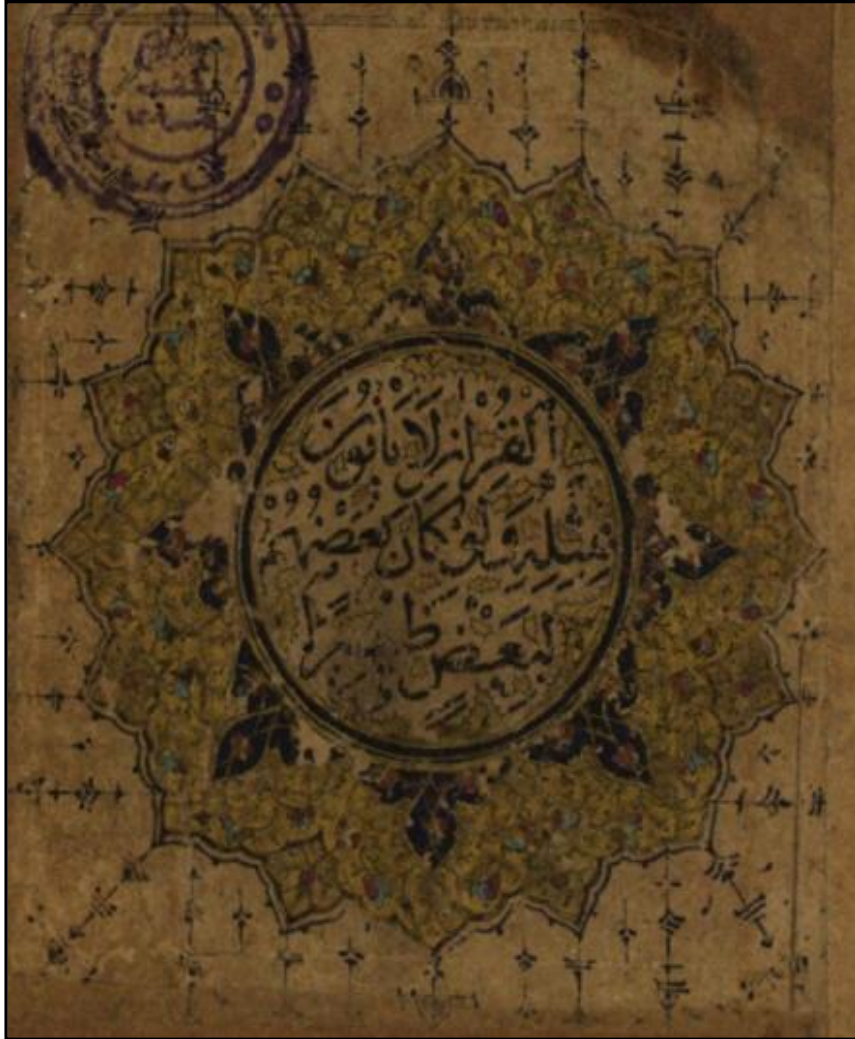 ٱلْقُرْاٰنِ لَا يَأْتُونَ
بِمِثْلِهِ وَلَوْ كَانَ بَعْضُهُمْ
لِبَعْضٍ ظَهِيرًا